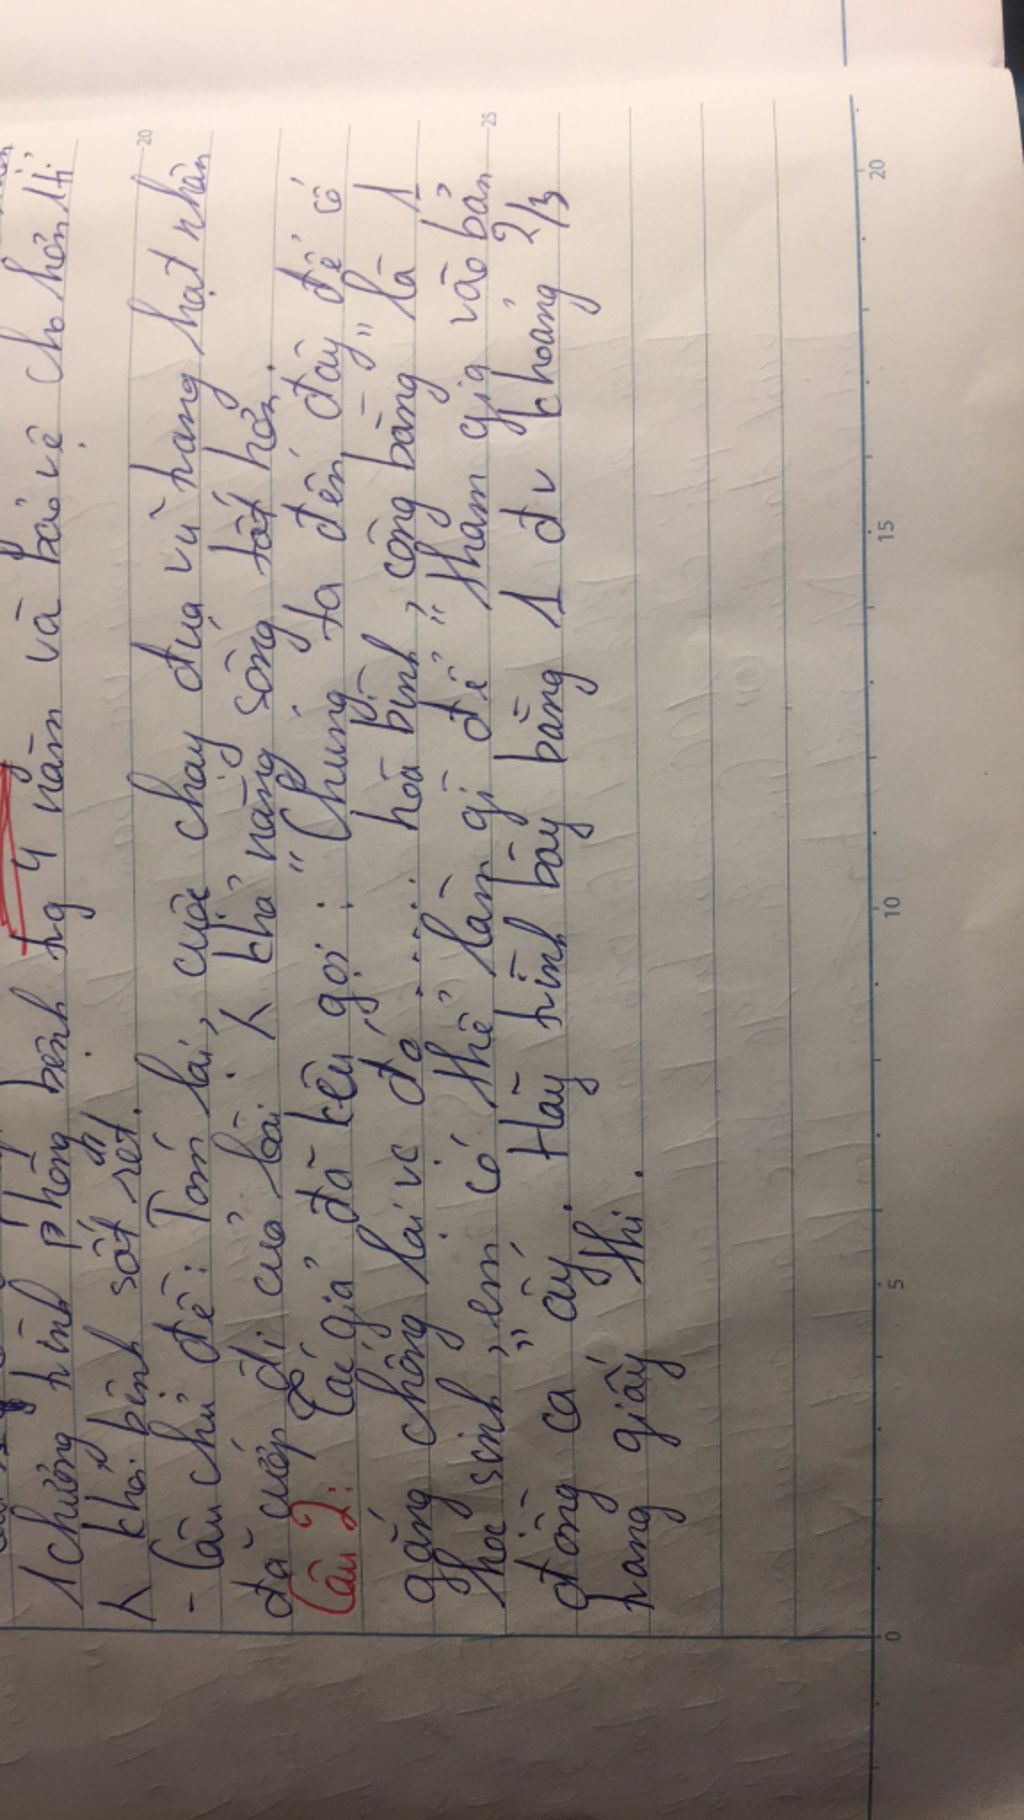 1 chương trình phòng bệnh trg 4 năm và bảo vệ cho hơn 1 tỉ
λ khỏi bệnh sốt rét.
- Câu chủ đề: Tóm lại, cuộc chạy đua vũ trang hạt nhân
đã cướp đi của loài λ khả năng sống tốt hơn.
Câu 2: Tác giả đã kêu gọi : "Chúng ta đến đây để cố
gắng chống lại vc đó ..... hòa bình, công bằng" là 1
học sinh, em có thể làm gì để "tham gia vào bản
đồng ca" ấy. Hãy trình bày bằng 1 đv khoảng 2/3
trang giấy thi.
20
25
0
5
10
15
20